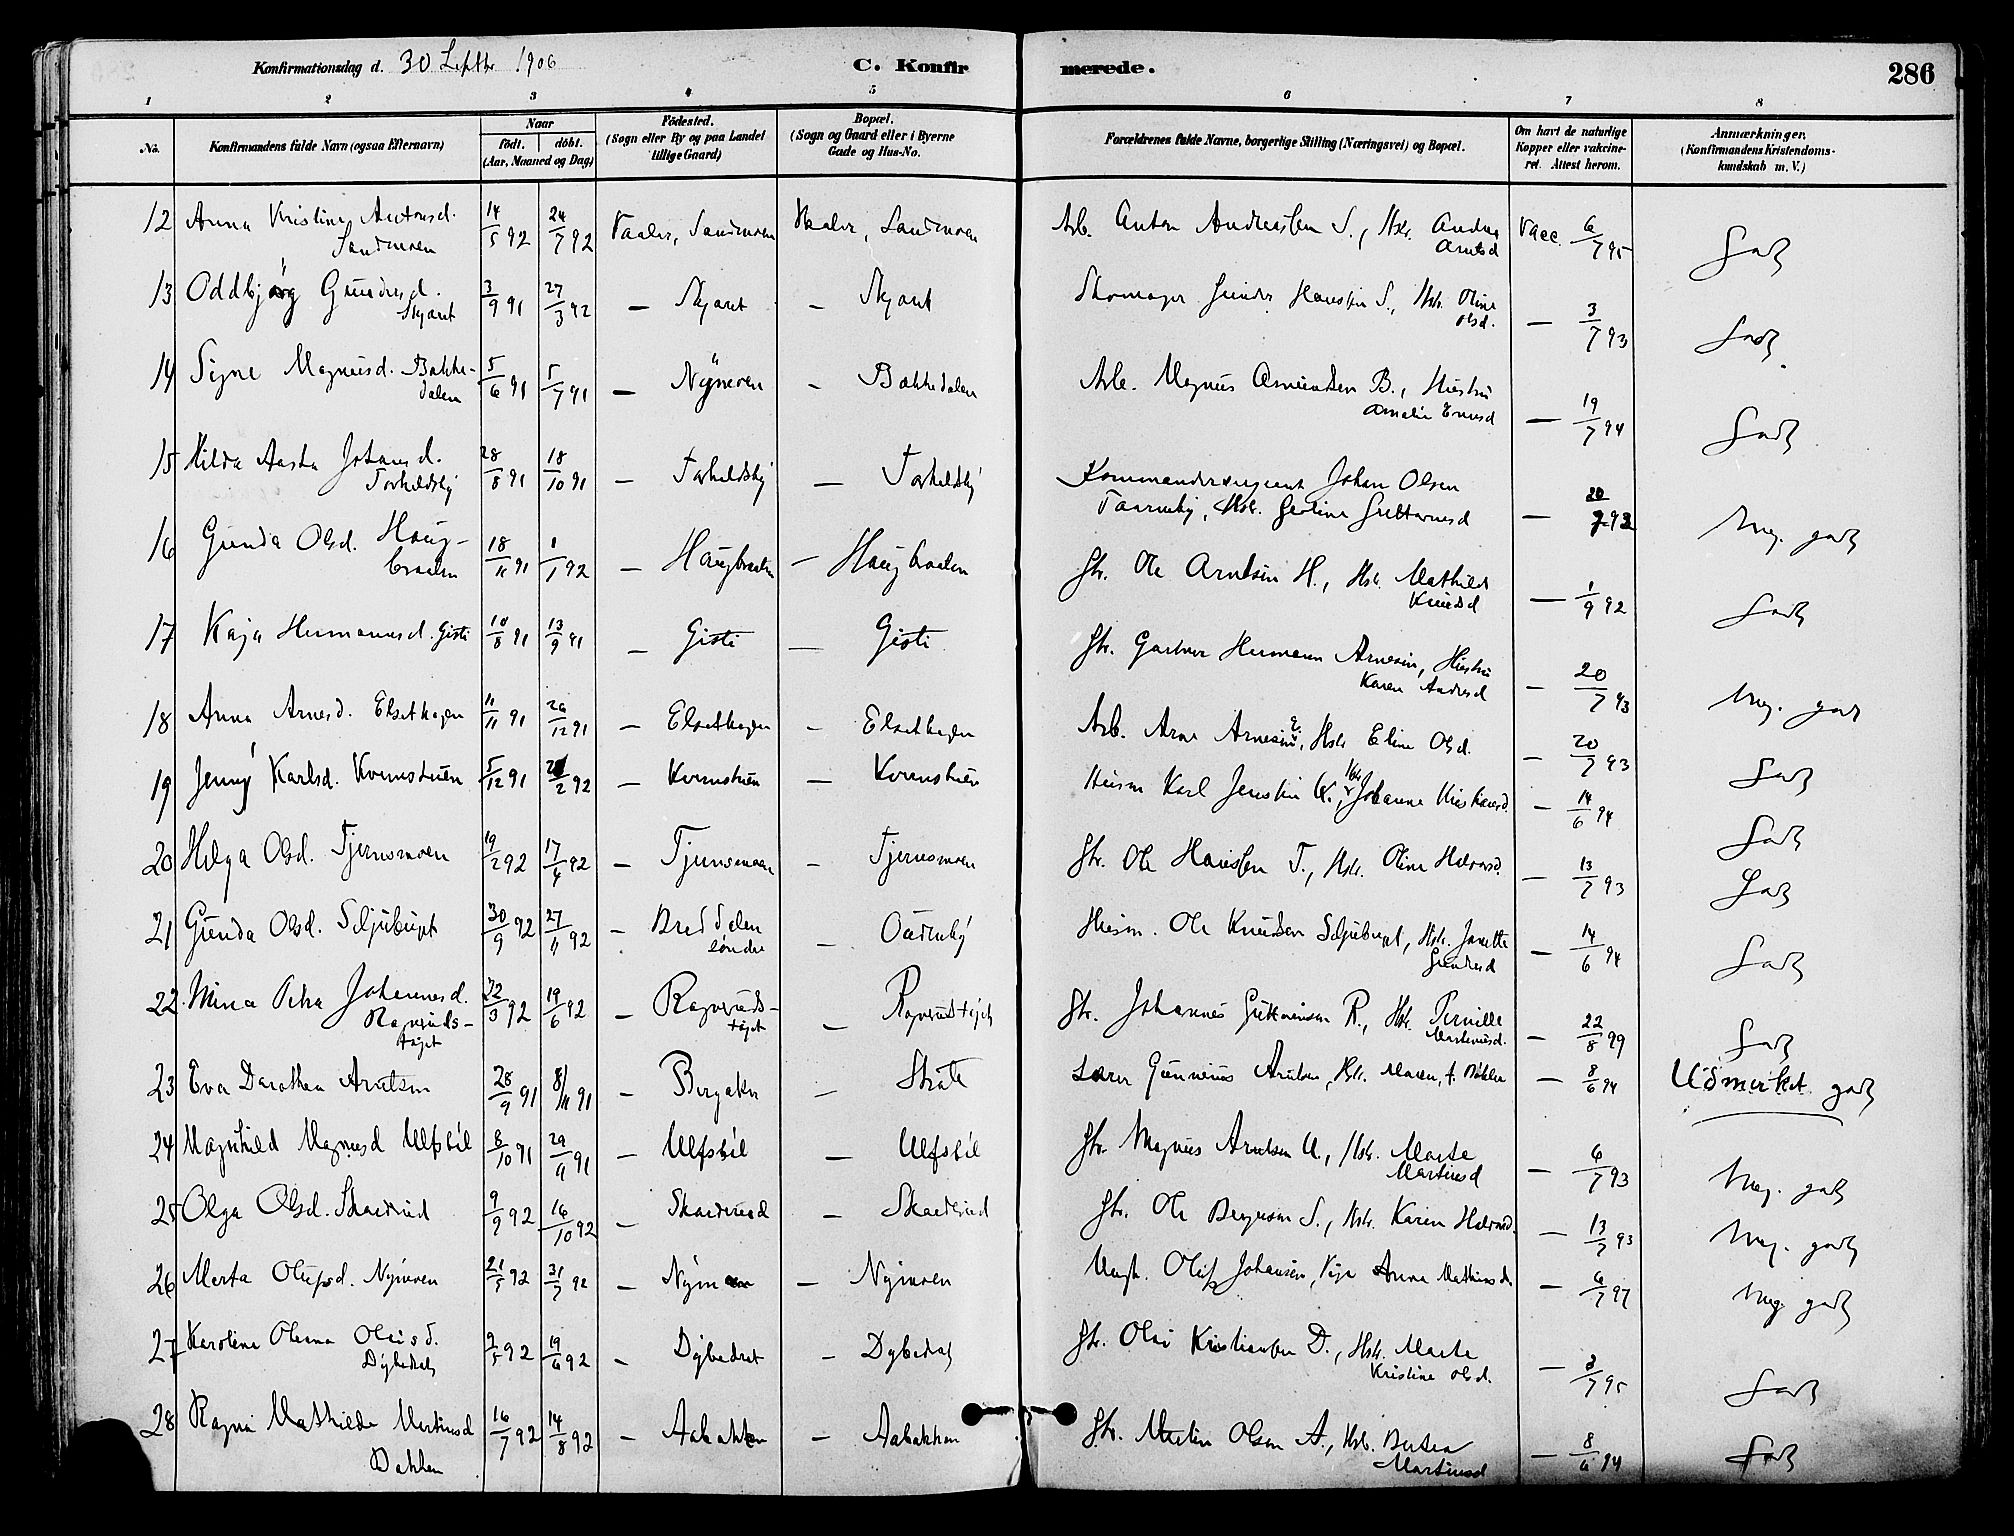 Konfirmationsdag d. 30 Septbr 1906
C. Konfirmerede.
286
1 2 3 4 5 6 7 8
No.
Konfirmandens fulde Navn (ogsaa Efternavn)
Naar
födt. döbt.
(Aar, Maaned og Dag)
Födested.
(Sogn eller By og paa Landet tillige Gaard)
Bopæl.
(Sogn og Gaard eller i Byerne Gade og Hus-No.
Forældrenes fulde Navne, borgerlige Stilling (Næringsvei) og Bopæl.
Om havt de naturlige Kopper eller vakcineret. Attest herom.
Anmærkninger.
(Konfirmandens Kristendomskundskab m. V.)
12 Anna Kristine Antonsd. Sandmoen 14/5 92 24/7 92 Vaaler, Sandmoen Vaaler, Sandmoen Arb. Anton Andreassen S., Hstr. Andrea Arntsd Vacc. 6/7 95 Godt
13 Oddbjörg Gundersd. Skjaret 3/9 91 27/3 92 – Skjaret – Skjaret Skomager Gunder Hansen S., Hstr. Oline Olsd. – 3/7 93 Godt
14 Signe Magnusd. Bakkedalen 5/6 91 5/7 91 – Nÿmoen – Bakkedalen Arb. Magnus Amundsen B., Hustru Amalie – 19/7 94 Godt
15 Hilda Aasta Johansd. Torkildsby 28/8 91 18/10 91 – Torkildsby – Torkildsby Kommandersergeant Johan Olsen – 20/7 93 Meg. godt
16 Gunda Olsd. Haugbraaten 18/11 91 1/1 92 – Haugbraaten – Haugbraaten Gbr. Ole Arntsen H., Hstr. Mathilde Knudsd – 1/9 92 Godt
17 Kaja Hermannsd. Gisti 10/8 91 13/9 91 – Gisti – Gisti Gbr. Gartner Hermann Arnesen, Hustru Karen Andersd – 20/7 93 Meg. godt
18 Anna Arnesd. Elsethagen 11/11 91 26/12 91 – Elsethagen – Elsethagen Arb. Arne Arnesen E., Hstr Eline Olsd. – 20/7 93 Godt
19 Jenny Karlsd. Kvernstuen 5/12 91 2/2 92 – Kvernstuen – Kvernstuen Husm Karl Jensen K., Hstr Johanne Kristiansd. – 14/6 94 Godt
20 Helga Olsd. Tjernsmoen 19/2 92 17/4 92 – Tjernsmoen – Tjernsmoen Gbr. Ole Hansen T., Hstr. Oline Halvorsd. – 13/7 93 Godt
21 Gunda Olsd. Seljubujet 30/9 92 27/11 92 – Breddalen söndre – Oudenby Husm. Ole Knudsen Seljubujet, Hstr. Janette Gundersd – 14/6 94 Godt
22. Mina Petra Johannesd. Ragnrudstøjet 22/3 92 19/6 92 – Ragnrudstøjet – Ragnrudstøjet Gbr. Johannes Guttormsen R., Hstr. Pernille Martinusd. – 22/8 99 Godt
23 Eva Dorothea Arntsen 28/9 91 8/11 91 – Bergaker – Strate Lærer Gunnerius Arntsen, Hstr. Maren, f. Böhler – 8/6 94 Udmerket godt
24 Magnhild Magnusd Ulfsböl 8/10 91 29/11 91 – Ulfsböl – Ulfsböl Gbr. Magnus Arntsen U., Hstr. Marte Martinsd – 6/7 93 Meg. godt
25 Olga Olsd. Skaderud 9/9 92 16/10 92 – Skaderud – Skaderud Gbr. Ole Bergersen S., Hstr. Karen Halvorsd. – 13/7 93 Meg. godt
26 Marta Olufsd. Nymoen 21/5 92 31/7 92 – Nymoen – Nymoen Ungk. Oluf Johansen, Pige Anna Mathiasd. – 6/7 97 Meg godt
27 Karoline Olema Olausd. Dybedal 2/5 92 19/6 92 – Dybedret – Dybedal Gbr. Olai Kristiansen D., Hstr. Marte Kristine Olsd. – 3/7 95 Godt
28 Ragna Mathilde Martinsd Dahlen 16/7 92 14/8 92 – Aabakken – Aabakken Gbr. Martin Olsen A., Hstr. Bertea Martinsd – 8/6 94 Godt